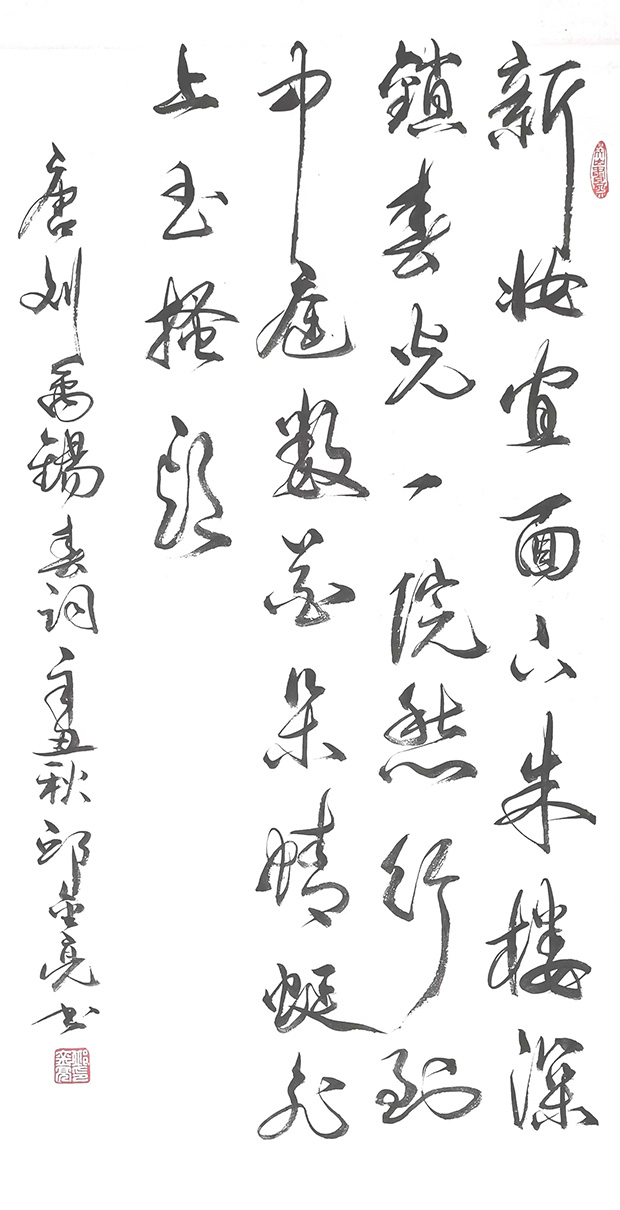 新妆宜面下朱楼深
鎖春光一院愁行到
中庭数花朵蜻蜓飛
上玉搔頭
唐刘禹錫春词辛丑秋邱金亮书